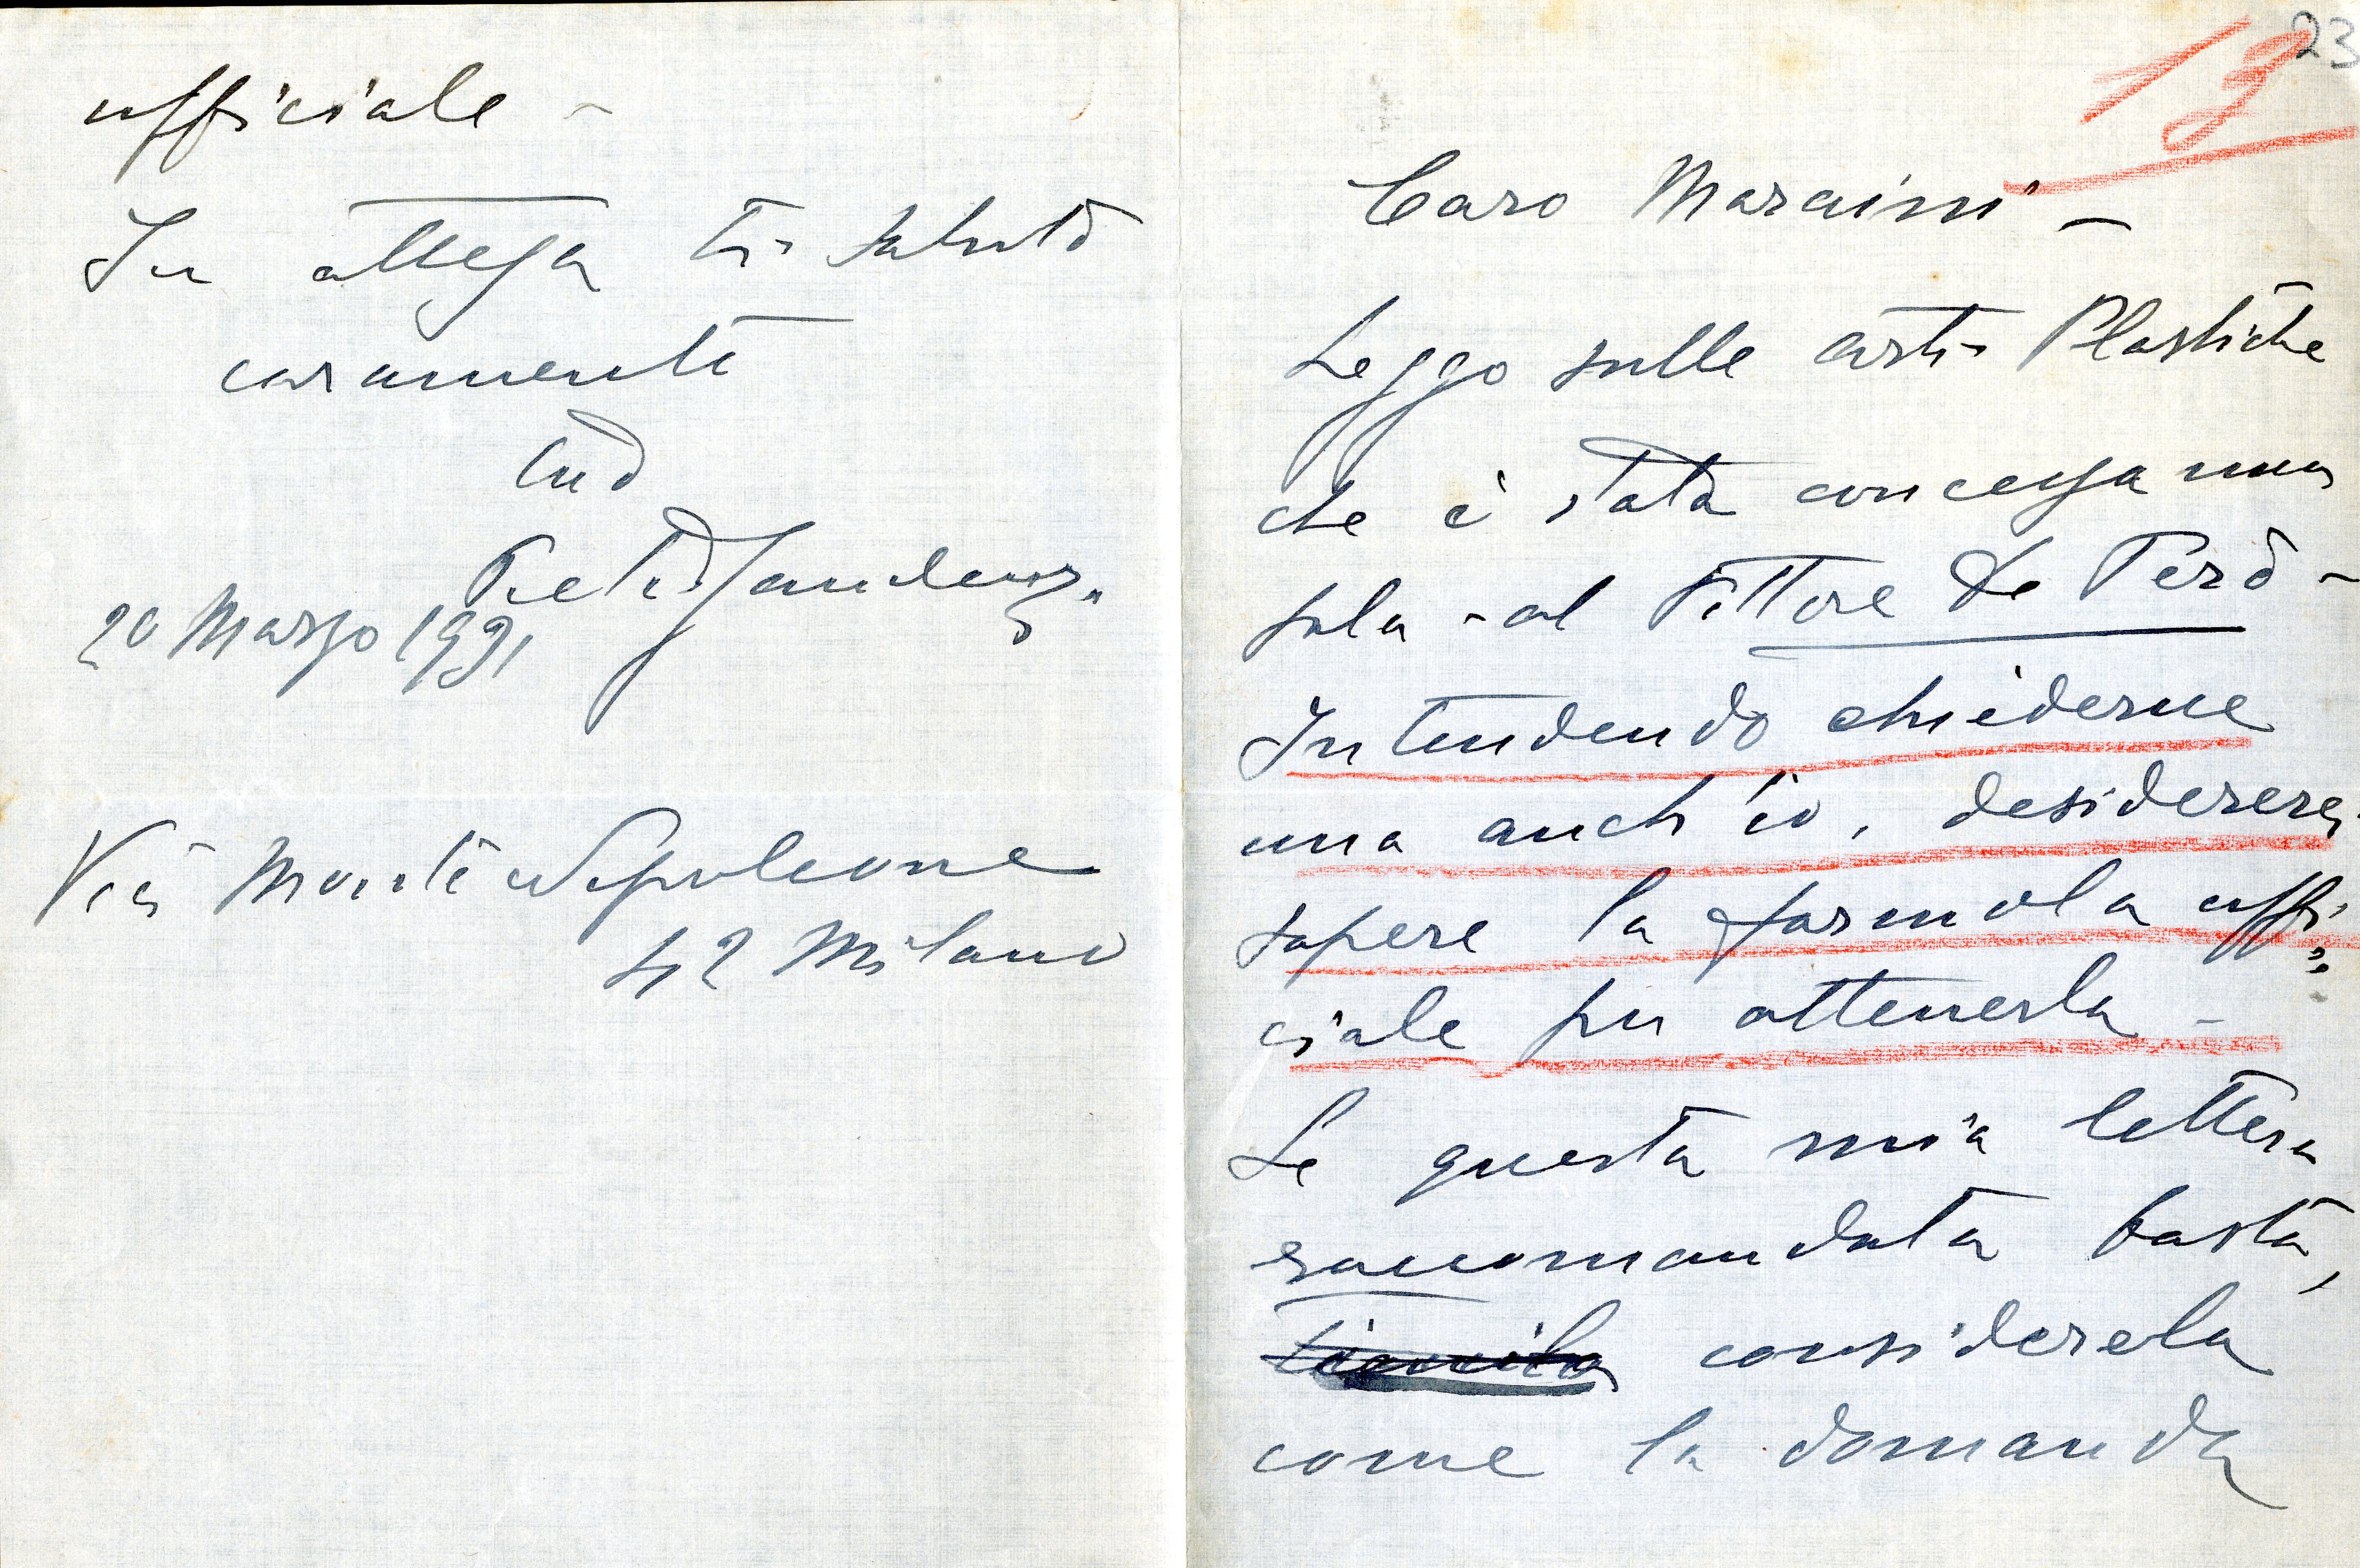 23
13
Caro Maraini –
Leggo sulle Arti Plastiche
che è stata concessa una
sala – al Pittore De Pero –
Intendendo chiederne
una anch'io, desidererei
sapere la formola uffi=
ciale per ottenerla –
Se questa mia lettera
raccomandata basta,
considerela
come la domanda
ufficiale –
In attesa ti saluto
caramente
tuo
Pietro Gaudenzi
20 Marzo 1931
Via Monte Napoleone
42 Milano